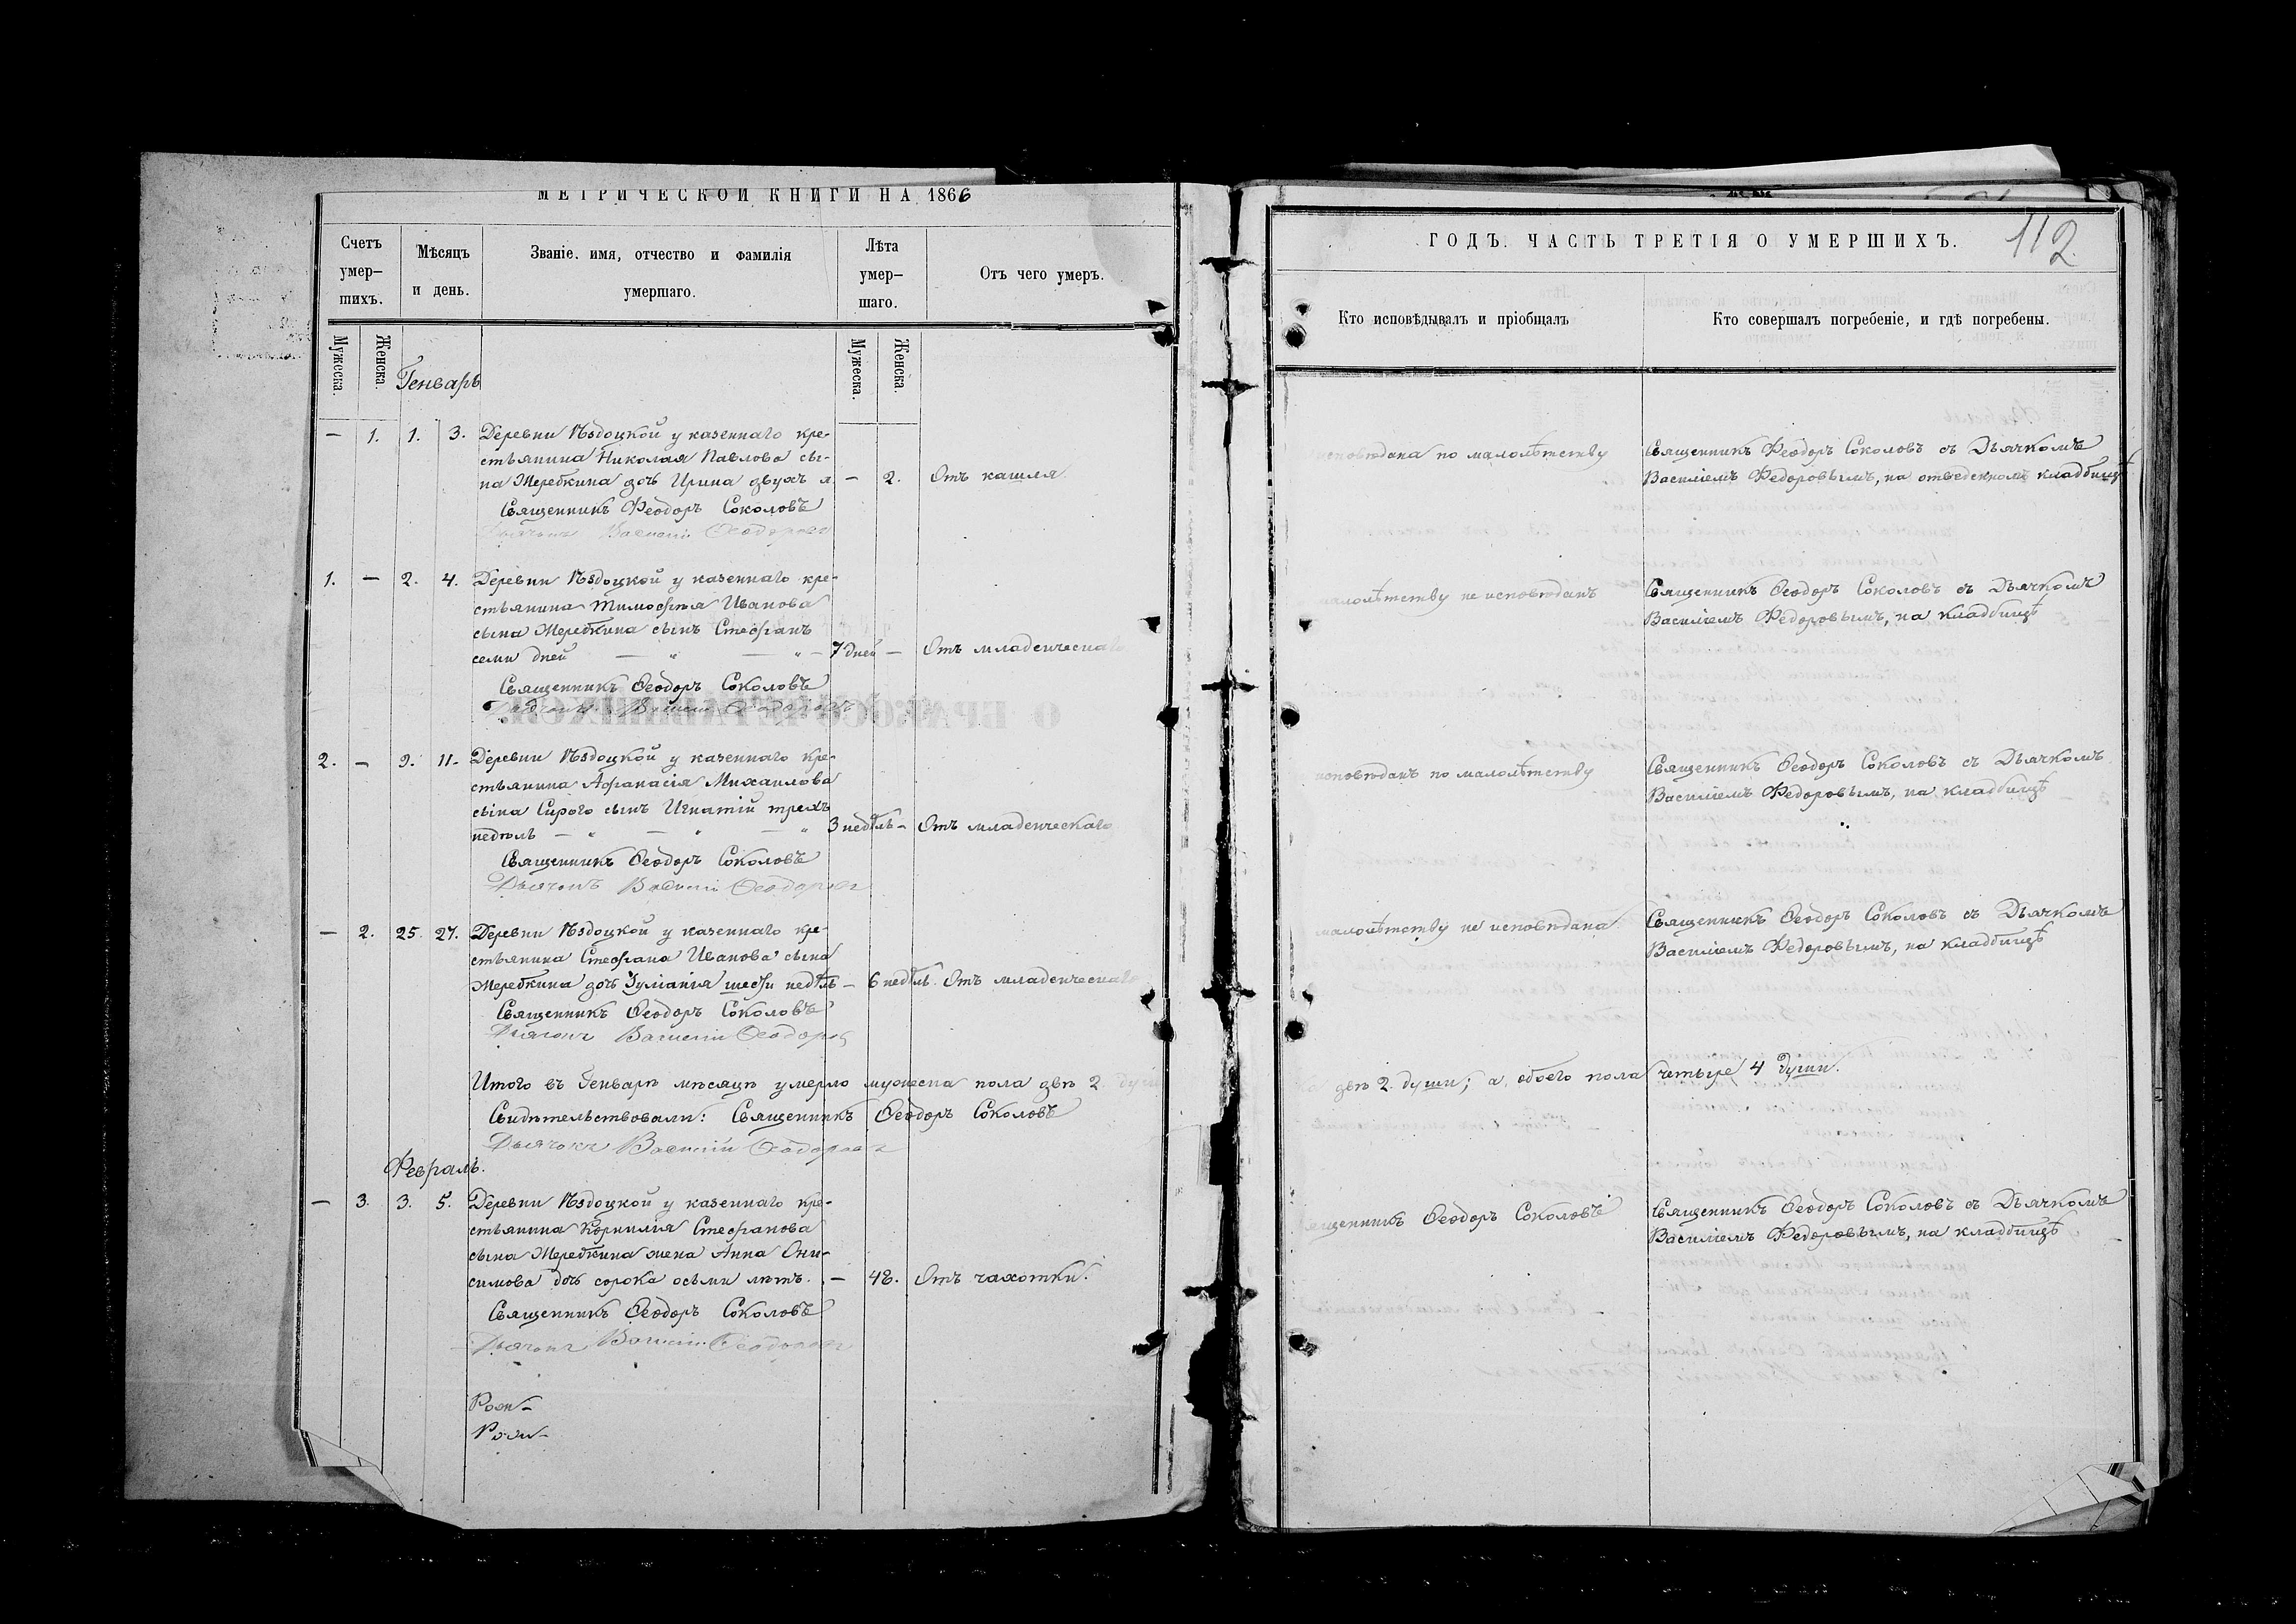 МЕТРИЧЕСКОЙ КНИГИ НА 1866
Счетъ умер- шихъ.
Мѣсяцъ и день.
Званіе, имя, отчество и фамилія умершаго.
Лѣта умер- шаго.
Отъ чего умеръ.
Мужеска.
Женска.
Генварь
Мужеска.
Женска.
— 1. 1. 3. Деревни Ѣздоцкой у казеннаго кре-
стьянина Николая Павлова сы-
на Жеребкина дочь Ирина двухъ л. — 2. Отъ кашля
Священникъ Феодоръ Соколовъ
Дьячокъ Василій Феодоровъ
1. — 2. 4. Деревни Ѣздоцкой у казеннаго кре-
стьянина Тимофѣя Иванова
сына Жеребкина сынъ Стефанъ
семи дней — „ — „ — 7 дней — Отъ младенческаго
Священникъ Ѳеодоръ Соколовъ
Дьячокъ Василій Ѳеодоровъ
2. — 9. 11. Деревни Ѣздоцкой у казеннаго кре-
стьянина Афанасія Михаилова
сына Сирого сынъ Игнатій трехъ
недѣль — „ — „ — „ 3 недѣль — Отъ младенческаго
Священникъ Ѳеодоръ Соколовъ
Дьячокъ Василій Ѳеодоровъ
— 2. 25. 27. Деревни Ѣздоцкой у казеннаго кре-
стьянина Стефана Иванова сына
Жеребкина дочь Іуліанія шести недѣль — 6 недѣль. Отъ младенческаго
Священникъ Ѳеодоръ Соколовъ
Дьячокъ Василій Ѳеодоровъ
Итого въ Генварѣ мѣсяцѣ умерло мужеска пола двѣ 2 души
Свидѣтельствовали: Священникъ Ѳеодоръ Соколовъ
Дьячокъ Василій Ѳеодоровъ
Февраль.
— 3. 3. 5. Деревни Ѣздоцкой у казеннаго кре-
стьянина Корнилія Стефанова
сына Жеребкина жена Анна Они-
симова дочь сорока осьми лѣтъ. — 48. Отъ чахотки.
Священникъ Ѳеодоръ Соколовъ
Дьячокъ Василій Ѳеодоровъ
ГОДЪ. ЧАСТЬ ТРЕТІЯ О УМЕРШИХЪ.
112
Кто исповѣдывалъ и пріобщалъ
Кто совершалъ погребеніе, и гдѣ погребены.
исповѣдана по малолѣтству
Священникъ Феодоръ Соколовъ съ Дьячкомъ
Василіемъ Федоровымъ, на отведенномъ кладбищѣ
малолѣтству не исповѣданъ
Священникъ Ѳеодоръ Соколовъ съ Дьячкомъ
Василіемъ Федоровымъ, на кладбищѣ
исповѣданъ по малолѣтству
Священникъ Ѳеодоръ Соколовъ съ Дьячкомъ
Василіемъ Федоровымъ, на кладбищѣ
малолѣтству не исповѣдана
Священникъ Ѳеодоръ Соколовъ съ Дьячкомъ
Василіемъ Федоровымъ, на кладбищѣ
двѣ 2. души; а обоего пола четыре 4 души.
Священникъ Ѳеодоръ Соколовъ
Священникъ Ѳеодоръ Соколовъ съ Дьячкомъ
Василіемъ Федоровымъ, на кладбищѣ